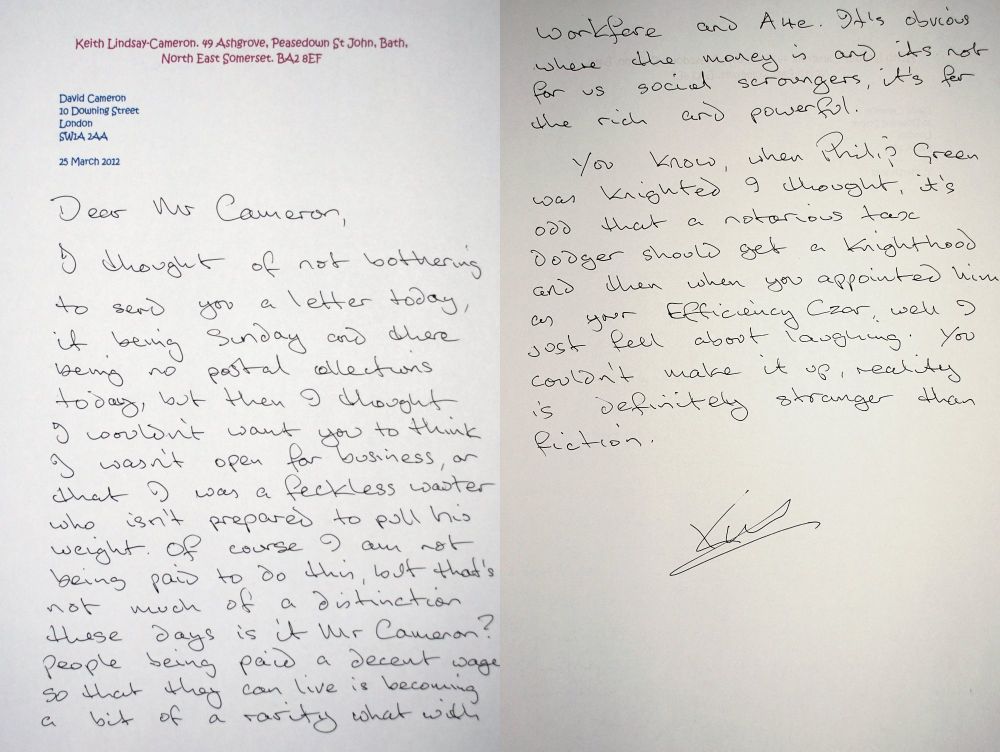 Keith Lindsay-Cameron. 49 Ashgrove, Peasedown St John, Bath,
North East Somerset. BA2 8EF
David Cameron
10 Downing Street
London
SW1A 2AA
25 March 2012
Dear Mr Cameron,
I thought of not bothering
to send you a letter today,
it being Sunday and there
being no postal collections
today, but then I thought
I wouldn't want you to think
I wasn't open for business, or
that I was a feckless waster
who isn't prepared to pull his
weight. Of course I am not
being paid to do this, but that's
not much of a distinction
these days is it Mr Cameron?
People being paid a decent wage
so that they can live is becoming
a bit of a rarity what with
workfare and A4e. It's obvious
where the money is and its not
for us social scroungers, it's for
the rich and powerful.
You know, when Philip Green
was knighted I thought, it's
odd that a notorious tax
dodger should get a knighthood
and then when you appointed him
as your Efficiency Czar, well I
just fell about laughing. You
couldn't make it up, reality
is definitely stranger than
fiction.